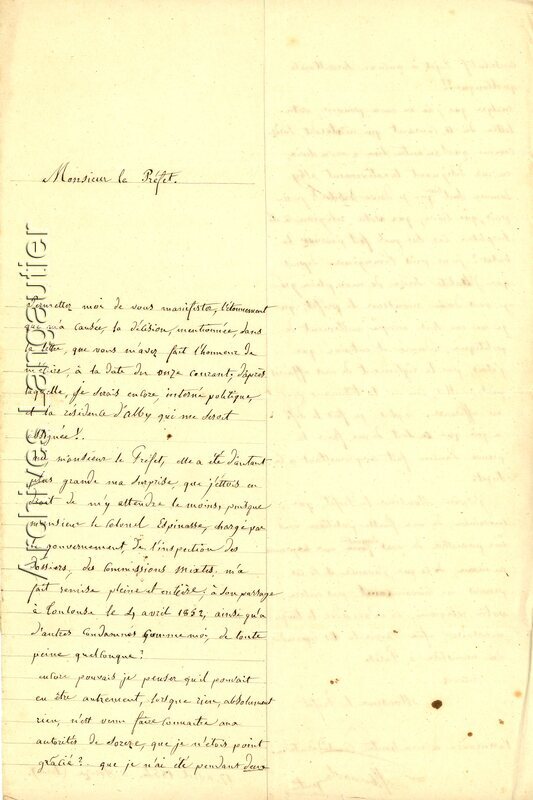 Monsieur le Préfet.
Permettez moi de vous manifester, l'étonnement
que m'a causée, la décision, mentionnée, dans
la lettre, que vous m'avez fait l'honneur de
m'écrire, à la date du onze courant; d'après
laquelle, je serais encore, interné politique,
et la résidence d'Alby qui me seroit
assignée!.
oui, monsieur le Préfet, elle a été d'autant
plus grande ma surprise, que j'étois en
droit de m'y attendre le moins, puisque
monsieur le Colonel Espinasse, chargé par
le gouvernement, de l'inspection des
dossiers, des Commissions mixtes, m'a
fait remise pleine et entière, à son passage
à Toulouse le 4 avril 1852, ainsi qu'à
d'autres Condamnés comme moi, de toute
peine quelconque?
encore pouvais je penser qu'il pouvait
en être autrement, lorsque rien, absolument
rien, n'est venu faire connaitre aux
autorités de Soreze, que je n'étois point
grâcié? que je n'ai été pendant deux
Archives Langautier